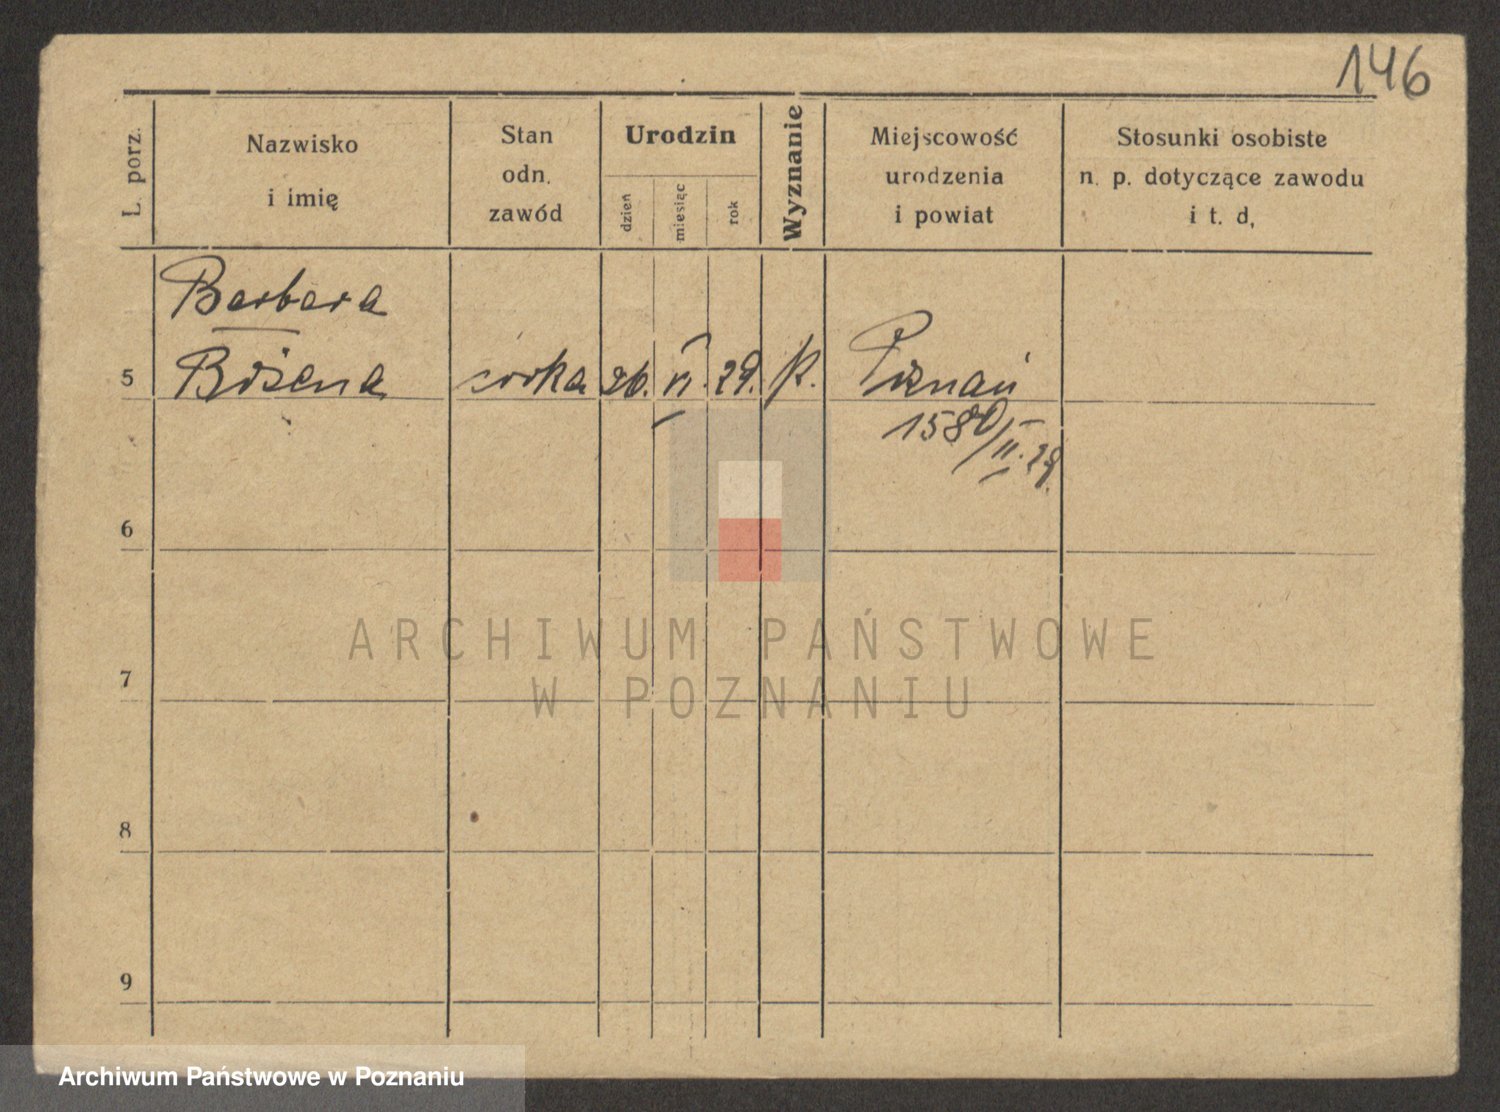 146
L. porz.
Nazwisko
i imię
Stan
odn.
zawód
Urodzin
dzień
miesiąc
rok
Wyznanie
Miejscowość
urodzenia
i powiat
Stosunki osobiste
n. p. dotyczące zawodu
i t. d,
Barbara
5 Bożena córka 26. VI. 29. k. Poznań
1580/II. 29.
6
7
8
9
ARCHIWUM PAŃSTWOWE
W POZNANIU
Archiwum Państwowe w Poznaniu